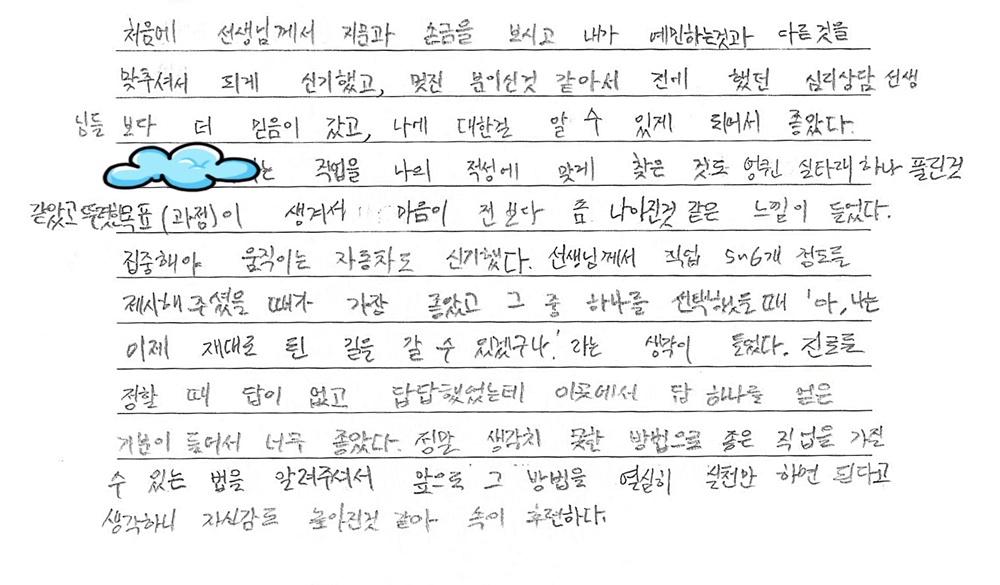 처음에 선생님께서 지문과 손금을 보시고 내가 예민하는것과 다른것을
맞추셔서 되게 신기했고, 멋진 분이신것 같아서 전에 했던 심리상담 선생
님들 보다 더 믿음이 갔고, 나에 대한걸 알 수 있게 되어서 좋았다.
는 직업을 나의 적성에 맞게 찾은 것도 엉퀸 실타래 하나 풀린것
같았고 뚜렷한 목표(과정)이 생겨서 마음이 전보다 좀 나아진것 같은 느낌이 들었다.
집중해야 움직이는 자동차도 신기했다. 선생님께서 직업 5~6개 정도를
제시해 주셨을 때가 가장 좋았고 그 중 하나를 선택했을때 '아, 나는
이제 재대로 된 길을 갈 수 있겠구나.' 라는 생각이 들었다. 진로를
정할 때 답이 없고 답답했었는테 이곳에서 답 하나를 얻은
기분이 들어서 너무 좋았다. 정말 생각치 못한 방법으로 좋은 직업을 가질
수 있는 법을 알려주셔서 앞으로 그 방법을 열실히 실천만 하면 된다고
생각하니 자신감도 높아진것 같아 속이 후련하다.